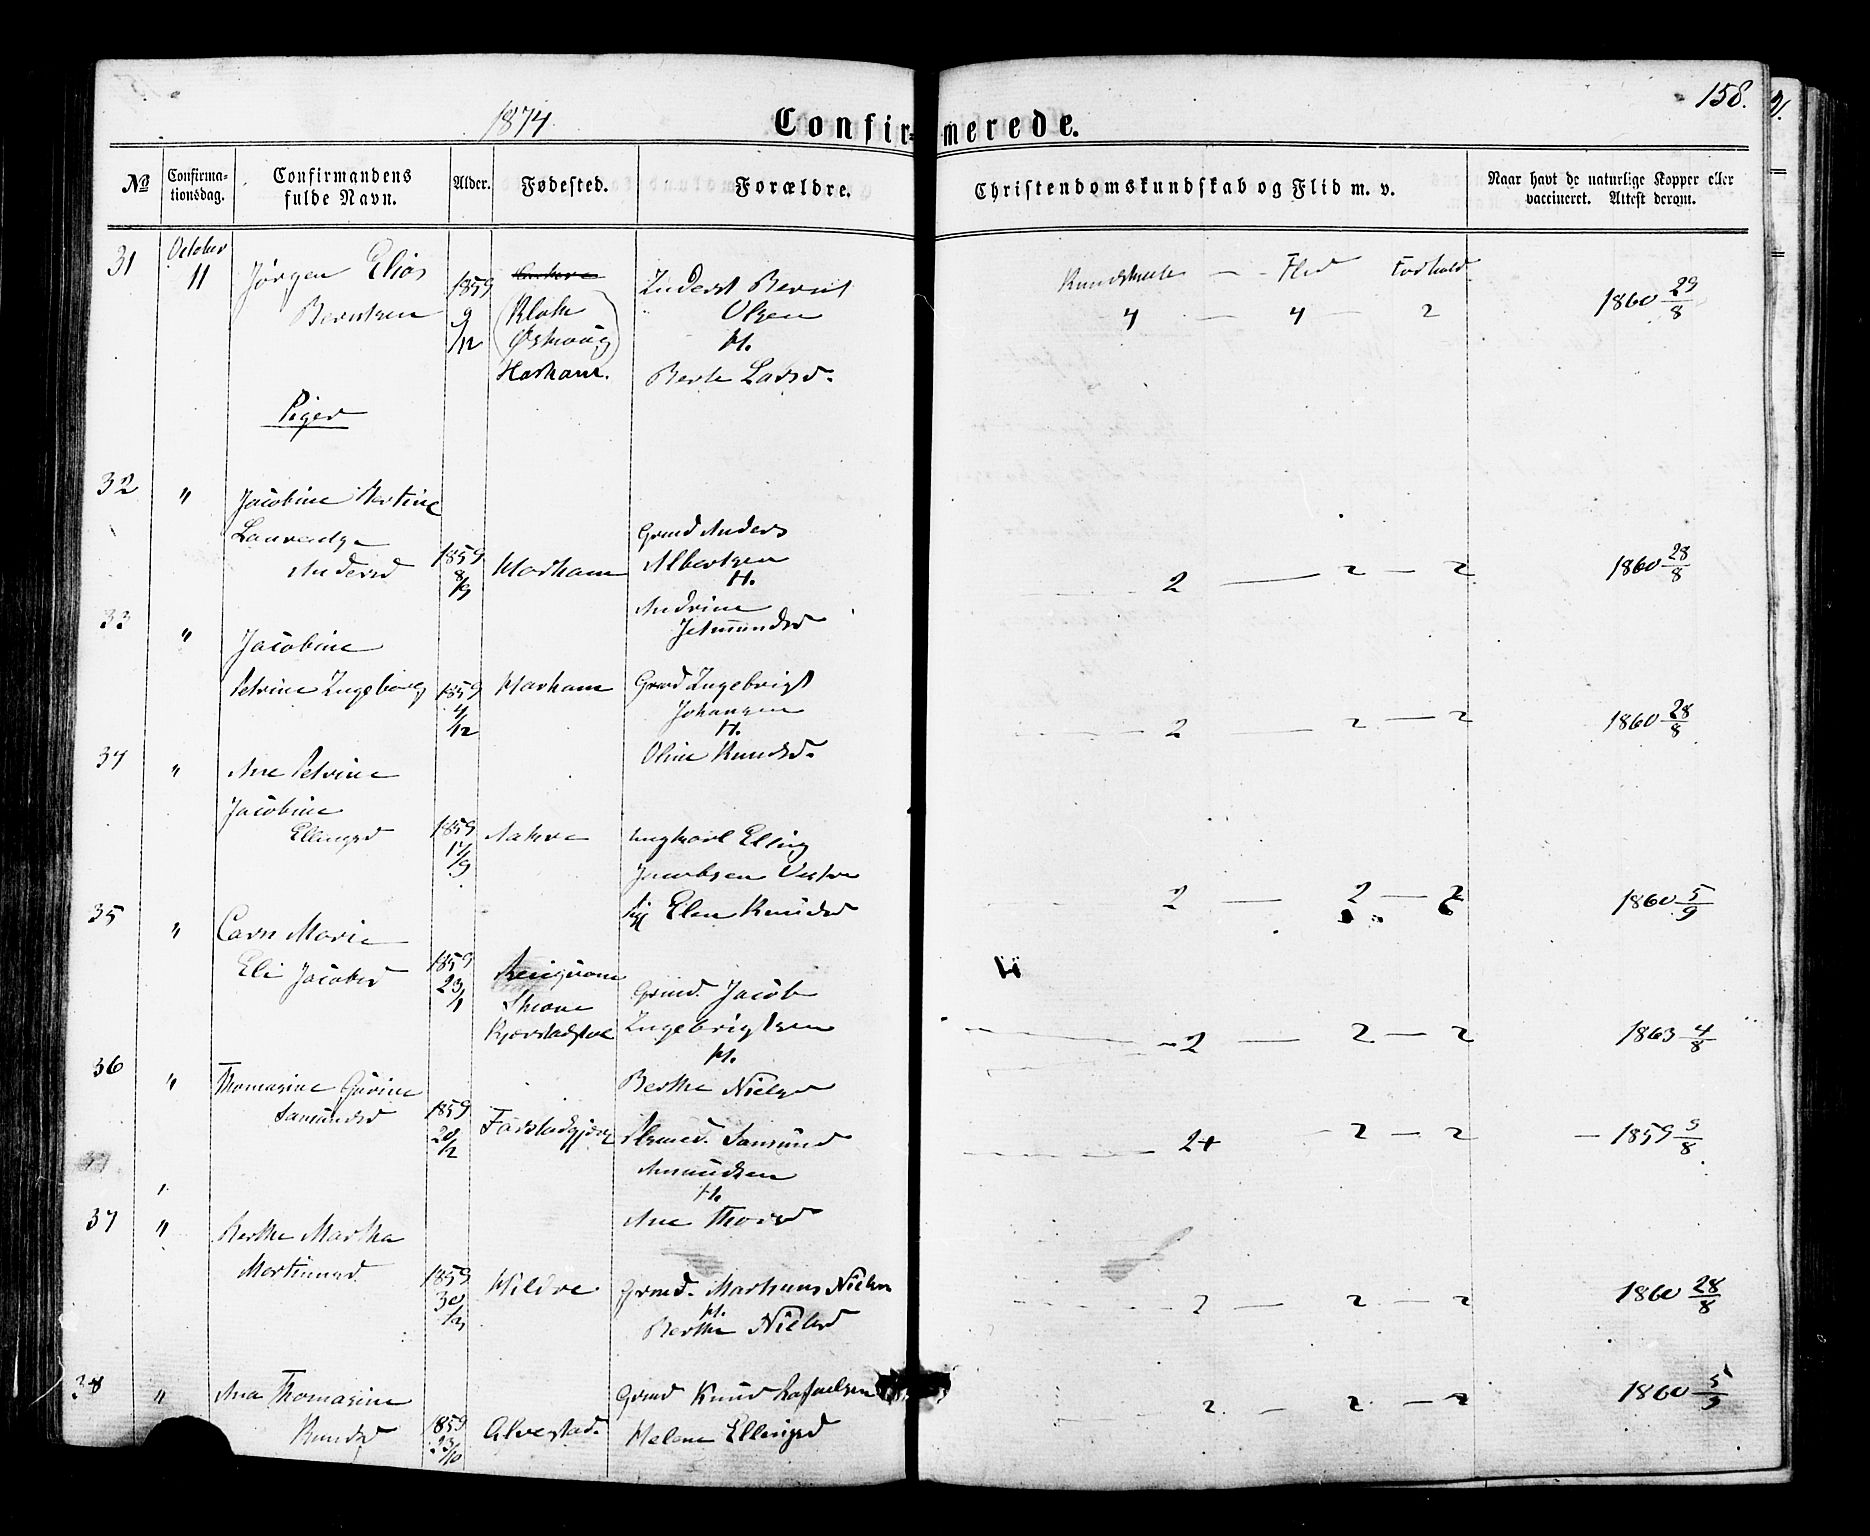 1874
Confirmerede.
158.
No
Confirmationsdag.
Confirmandens fulde Navn.
Alder.
Fødested.
Forældre.
Christendomskundskab og Flid m. v.
Naar havt de naturlige Kopper eller vaccineret. Attest derom.
31
October
11
Jørgen Elias
Berntsen
1859
9/12
Østevaag
Harham.
Inderst Bernt
Olsen
H.
Berte Larsd.
Kundskab — Flid Forhold
4 — 4 — 2
1860 29/8
Piger
32
"
Jacobine Martine
Laurentze
Andersd
1859
8/9
Harham
Grmd Anders
Albertsen
H.
Andrine
Jetmundsd
2 — 2 — 2
1860 28/8
33
"
Jacobine
Petrine Ingeborg
1859
4/12
Harham
Grmd Ingebrigt
Johansen
H.
Oline Knudsd.
2 — 2 — 2
1860 28/8
34
"
Ane Petrine
Jacobine
Ellingsd
1859
17/9
Aakre
Ungkarl Elling
Jacobsen
Pig Elen Knudsd
2 — 2 — 2
1860 5/9
35
"
Caren Marie
Eli Jacobsd
1859
23/1
Grmd. Jacob
Ingebrigtsen
H.
Berthe Nielsd
2 — 2 — 2
1863 4/8
36
"
Thomasine Gurine
Samundsd
1859
20/2
Farstadgjære
Plsmd. Samund
Amundsen
H.
Ane Thorsd
2+ — 2 — 2
— 1859 5/8
37
"
Berthe Martha
Martinusd
1859
30/12
Hildre
Grmd. Martinus Nielsen
H.
Berthe Nielsd
2 — 2 — 2
1860 28/8
38
"
Ana Thomasine
Knudsd
1859
23/10
Alvestad.
Grmd Knud Rafaelsen
Helene Ellingsd
2 — 2 — 2
1860 5/9